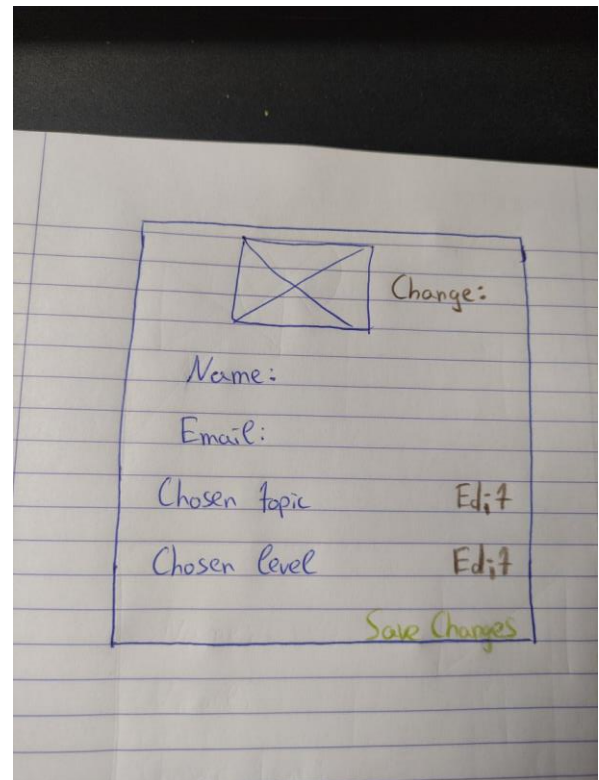 Change:
Name:
Email:
Chosen topic Edit
Chosen level Edit
Save Changes